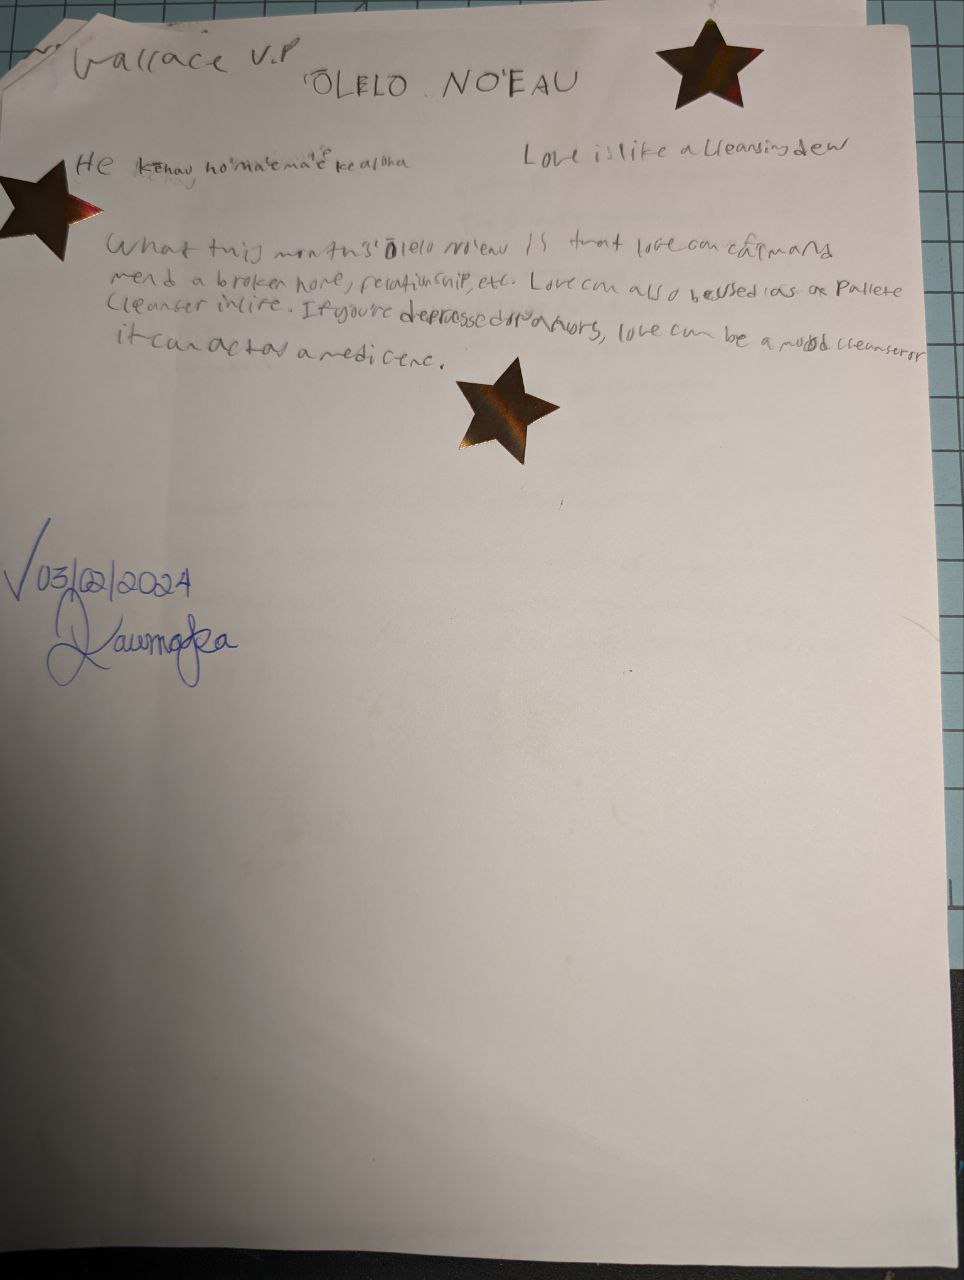 Wallace V.P
'ŌLELO NO'EAU
He kēhau ho'ma'ema'e ke aloha
Love is like a cleansing dew
What this month's 'Ōlelo No'eau is that love can calm and
mend a broken home, relationship, etc. Love can also be used as a Pallete
Cleanser in life. If you're depressed or, love can be a mood cleanser or
it can act as a medicene.
√ 03/02/2024